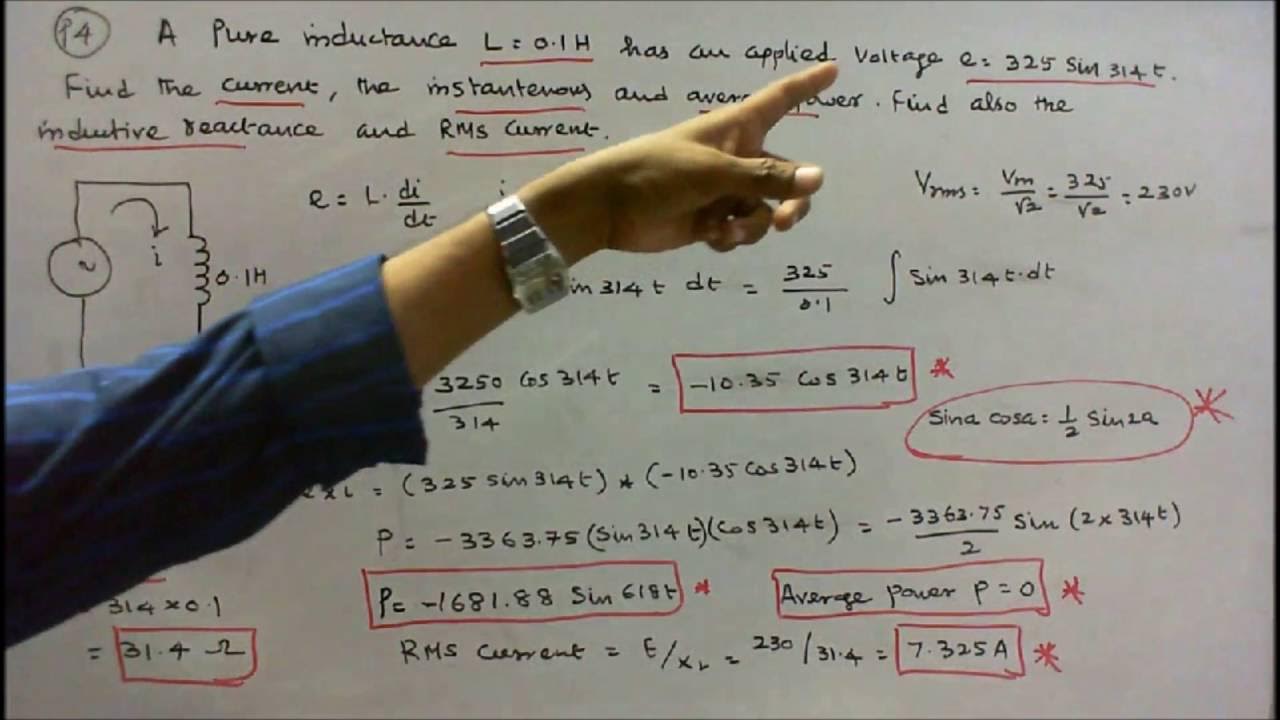 P4 A Pure inductance L = 0.1H has an applied voltage e = 325 Sin 314 t.
Find the current, the instantenous and average power. Find also the
inductive reactance and RMS Current.
e = L. di/dt i
Vrms = Vm/√2 = 325/√2 = 230V
~ i 0.1H
in 314 t dt = 325/0.1 ∫ Sin 314 t. dt
3250/314 Cos 314t = -10.35 Cos 314 t *
Sina cosa = 1/2 Sin2a *
= (325 sin 314 t) * (-10.35 Cos 314t)
P = -3363.75 (Sin 314 t)(Cos 314t) = -3363.75/2 Sin (2 x 314t)
P = -1681.88 Sin 618t * Average power P = 0 *
314 x 0.1
= 31.4 Ω
RMS Current = E/XL = 230/31.4 = 7.325A *